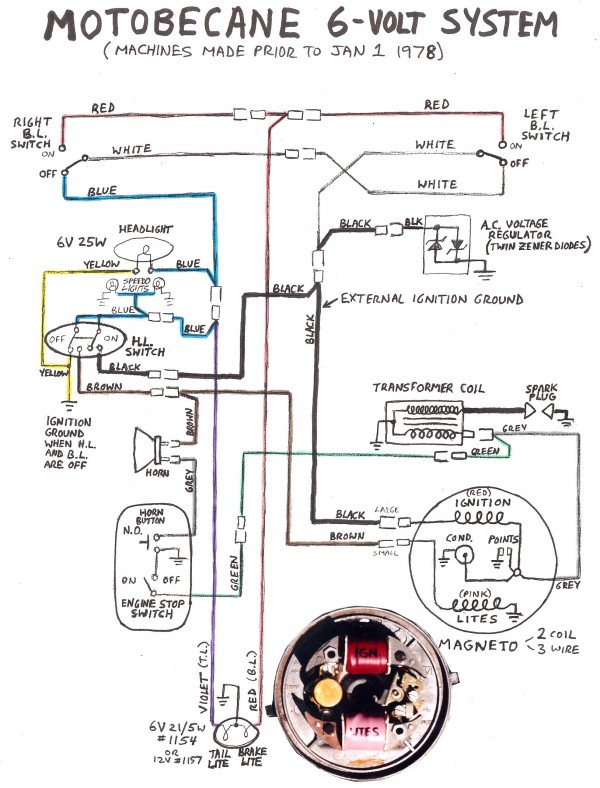 MOTOBECANE 6-VOLT SYSTEM
(MACHINES MADE PRIOR TO JAN 1 1978)
RED
RED
RIGHT
B.L.
SWITCH
ON
OFF
LEFT
B.L.
SWITCH
ON
OFF
WHITE
WHITE
WHITE
BLUE
HEADLIGHT
6V 25W
YELLOW
BLUE
SPEEDO
LIGHTS
BLUE
BLUE
BLACK
BLK
A.C. VOLTAGE
REGULATOR
(TWIN ZENER DIODES)
BLACK
EXTERNAL IGNITION GROUND
BLACK
OFF
ON
H.L.
SWITCH
BLACK
YELLOW
BROWN
IGNITION
GROUND
WHEN H.L.
AND B.L.
ARE OFF
BROWN
HORN
GREY
TRANSFORMER COIL
SPARK
PLUG
GREY
GREEN
HORN
BUTTON
N.O.
ON
OFF
ENGINE STOP
SWITCH
GREEN
BLACK
LARGE
BROWN
SMALL
(RED)
IGNITION
COND.
POINTS
(PINK)
LITES
GREY
MAGNETO
2 COIL
3 WIRE
VIOLET (T.L.)
RED (B.L.)
6V 21/5W
#1154
OR
12V #1157
TAIL
LITE
BRAKE
LITE
IGN.
LITES